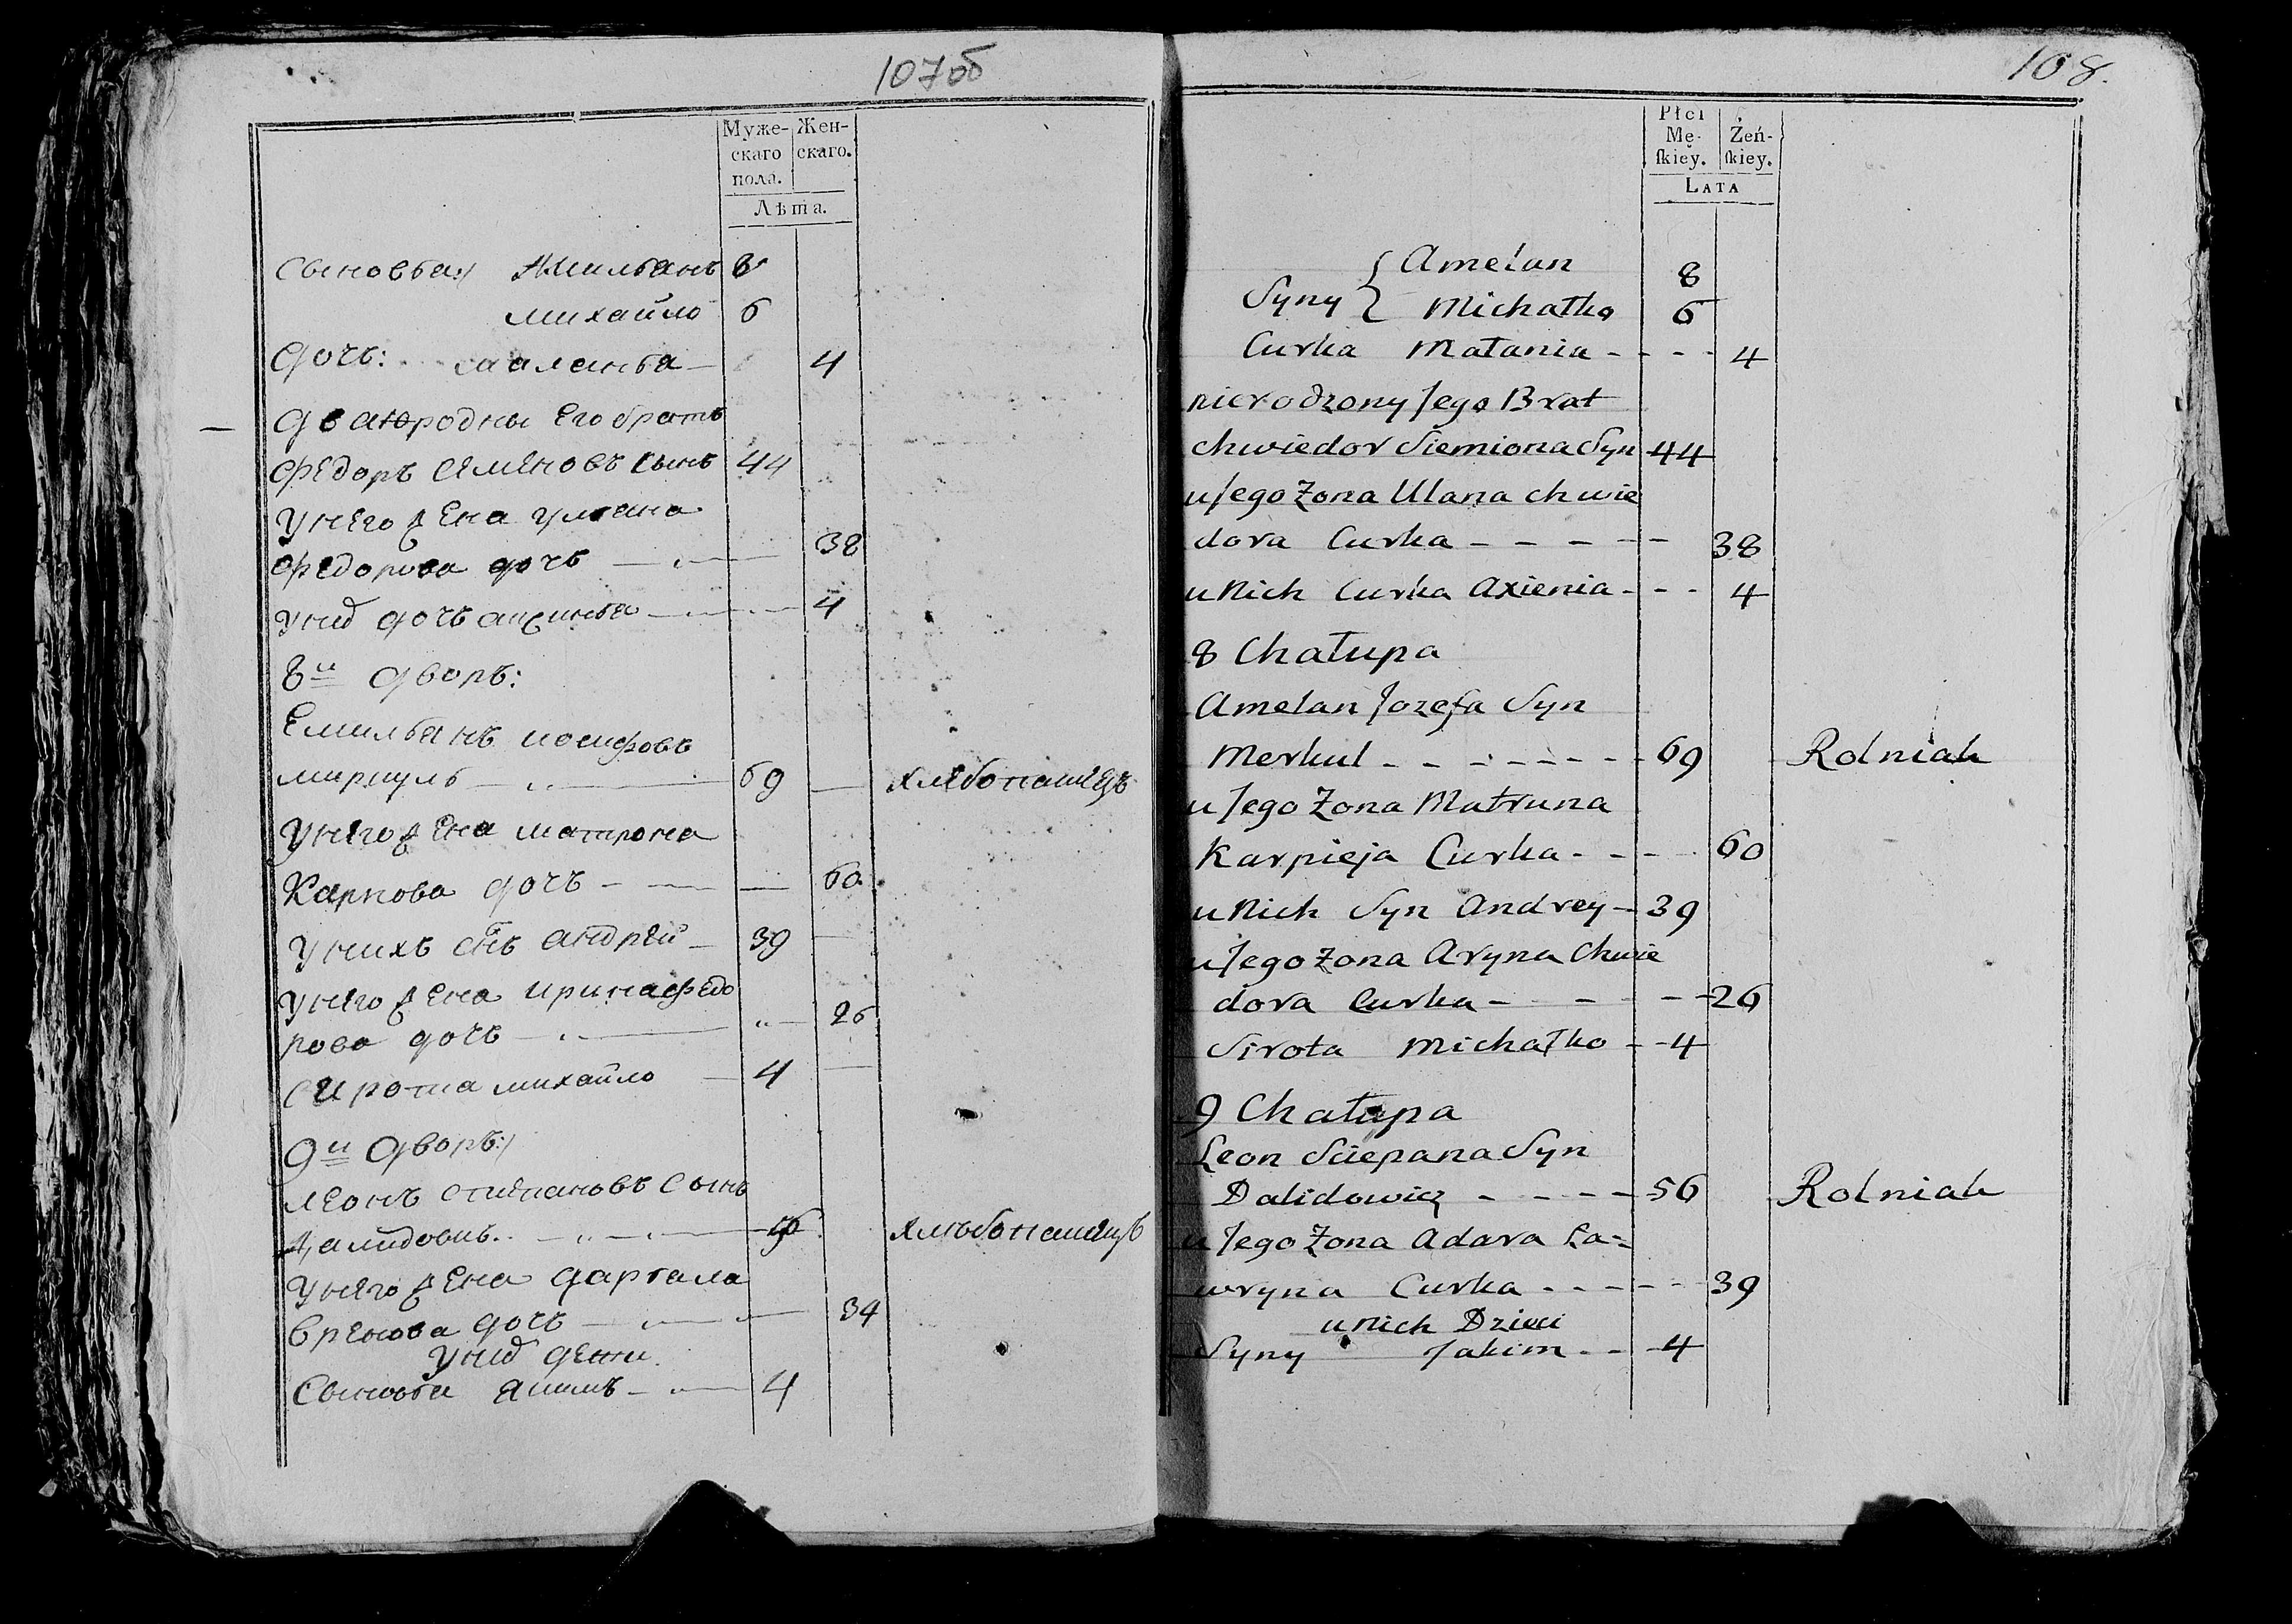 107об
Муже- Жен-
скаго скаго.
пола.
Лѣта.
Сыновья:/ Жмильянъ 8
Михайло 6
дочь: маланья 4
дваюродны Его братъ
Федоръ Семеновъ сынъ 44
У него жена Ульяна
Федорова дочь 38
У нид дочь аксинья 4
8й дворъ:
Емильянъ иосифовъ
миркуль 69 хлебопашецъ
У него жена матрона
Карпова дочь 60
У нихъ снъ андрей 39
У него жена ирина федо
рова дочь 26
Сирота михайло 4
9й дворъ:/
леонъ степановъ сынъ
далидовичъ 56 хлѣбопашецъ
У него жена дарья ла
вренова дочь 39
У нид дети
Сыновья якимъ 4
108.
Płci
Mę- Żeń-
skiey. skiey.
LATA
Syny { Amelan 8
Michałko 6
Curka Małania - - - - 4
nierodzony Jego Brat
Chwiedor Siemiona Syn 44
u Jego Zona Ulana Chwie
dora Curka - - - - - 38
u Nich Curka Axienia - - - 4
8 Chałupa
Amelan Jozefa Syn
Merkul - - - - - - - 69 Rolniak
u Jego Zona Matruna
Karpieja Curka - - - 60
u Nich Syn Andrey - 39
u Jego Zona Aryna Chwie
dora Curka - - - - - 26
Sirota Michałko - - 4
9 Chałupa
Leon Sciepana Syn
Dalidowicz - - - - - 56 Rolniak
u Jego Zona Adara Ła-
wryna Curka - - - - - 39
u Nich Dzieci
Syny Jakim - - 4